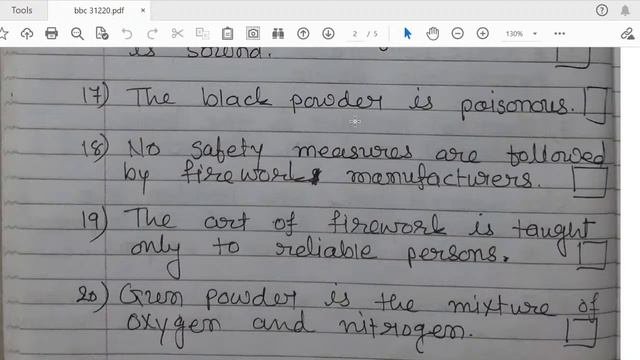 Tools
bbc 31220.pdf ×
2 / 5
130%
is sound.
17) The black powder is poisonous.
18) No safety measures are followed
by fireworks manufacturers.
19) The art of firework is taught
only to reliable persons.
20) Gun powder is the mixture of
oxygen and nitrogen.